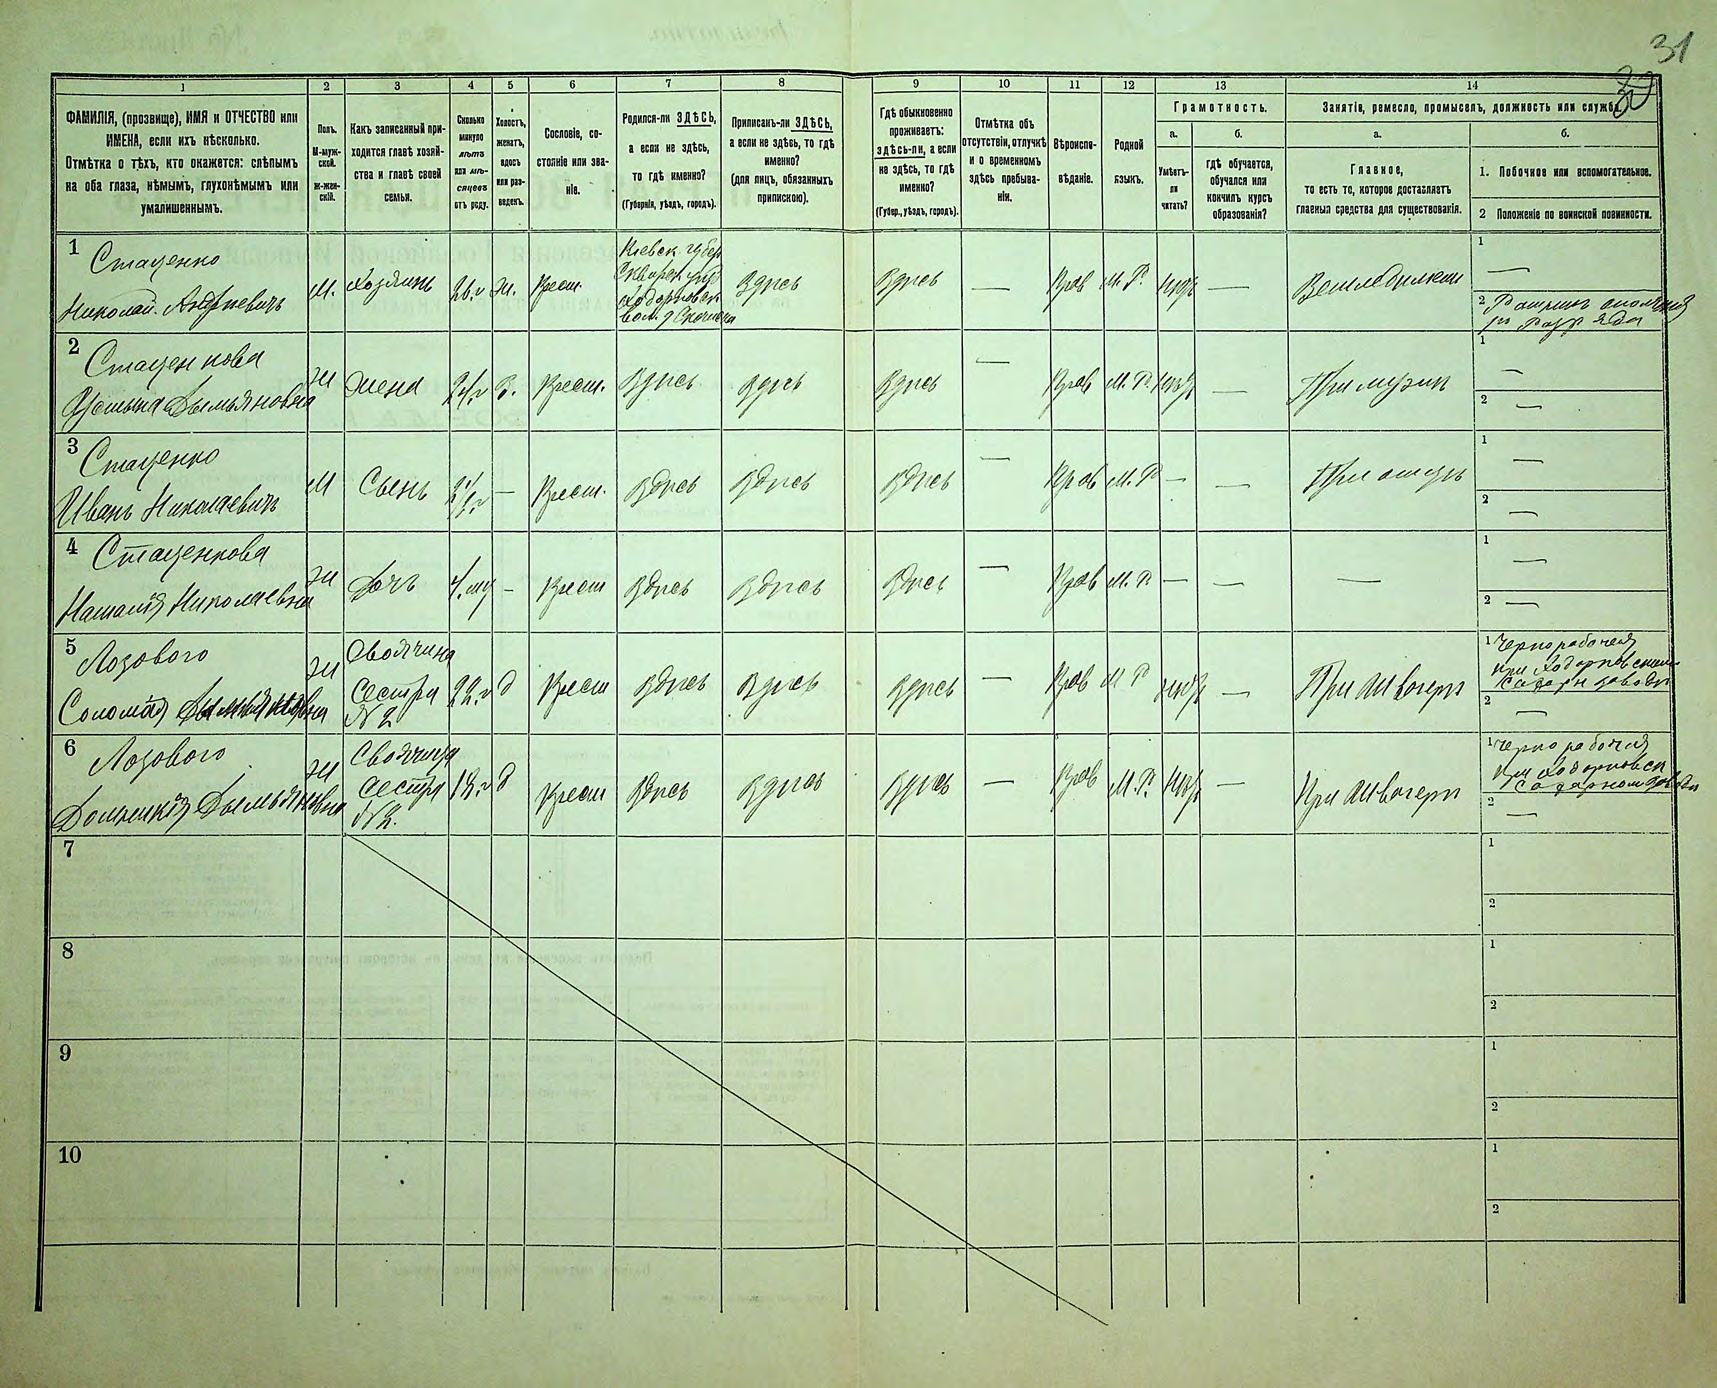 31
30
1
2
3
4
5
6
7
8
9
10
11
12
13
14
ФАМИЛІЯ, (прозвище), ИМЯ и ОТЧЕСТВО или
ИМЕНА, если ихъ нѣсколько.
Отмѣтка о тѣхъ, кто окажется: слѣпымъ
на оба глаза, нѣмымъ, глухонѣмымъ или
умалишеннымъ.
Полъ.
М-муж-
ской.
ж-жен-
скій.
Какъ записанный при-
ходится главѣ хозяй-
ства и главѣ своей
семьи.
Сколько
минуло
лѣтъ
или мѣ-
сяцевъ
отъ роду.
Холостъ,
женатъ,
вдовъ
или раз-
веденъ.
Сословіе, со-
стояніе или зва-
ніе.
Родился-ли ЗДѢСЬ,
а если не здѣсь,
то гдѣ именно?
(Губернія, уѣздъ, городъ).
Приписанъ-ли ЗДѢСЬ,
а если не здѣсь, то гдѣ
именно?
(для лицъ, обязанныхъ
припискою).
Гдѣ обыкновенно
проживаетъ:
здѣсь-ли, а если
не здѣсь, то гдѣ
именно?
(Губер., уѣздъ, городъ).
Отмѣтка объ
отсутствіи, отлучкѣ
и о временномъ
здѣсь пребыва-
ніи.
Вѣроиспо-
вѣданіе.
Родной
языкъ.
Грамотность.
а.
Умѣетъ-
ли
читать?
б.
гдѣ обучается,
обучался или
кончилъ курсъ
образованія?
Занятія, ремесло, промыселъ, должность или служба.
а.
Главное,
то есть то, которое доставляетъ
главныя средства для существованія.
б.
1. Побочное или вспомогательное.
2 Положеніе по воинской повинности.
1 Стаценко
Николай Андреевичъ
м. хозяинъ 26.г ж. Крест.
Кіевск. губер
Сквирск. уѣз
Ходорковск
вол. д
Здѣсь Здѣсь — Прав М. Р. нѣтъ — Земледѣлецъ
1 —
2 Ратникъ ополченія
2 Стаценкова
Устинья Дымьяновна
ж жена 24.г З. Крест. Здѣсь Здѣсь Здѣсь — Прав М. Р. нѣтъ — При мужѣ
1 —
2 —
3 Стаценко
Иванъ Николаевичъ
М Сынъ — Крест. Здѣсь Здѣсь Здѣсь — Прав М. Р — — При отцѣ
1 —
2 —
4 Стаценкова
Наталія Николаевна
ж Дочь 4.мѣ — Крест Здѣсь Здѣсь Здѣсь — Прав М. Р. — — —
1 —
2 —
5 Лозового
Соломія Дымьяновна
ж Своячина
Сестра
№ 2
22.г д Крест Здѣсь Здѣсь Здѣсь — Прав М Р нѣтъ — При швагерѣ
1 Чернорабочая
при Ходорковском
Сахарн заводѣ
2 —
6 Лозового
Домникія Дымьяновна
ж Своячина
Сестра
№ 2.
18.г д Крест Здѣсь Здѣсь Здѣсь — Прав М. Р. нѣтъ — При швагерѣ
1 Чернорабочая
при Ходорковск
Сахарном заводѣ
2 —
7
1
2
8
1
2
9
1
2
10
1
2